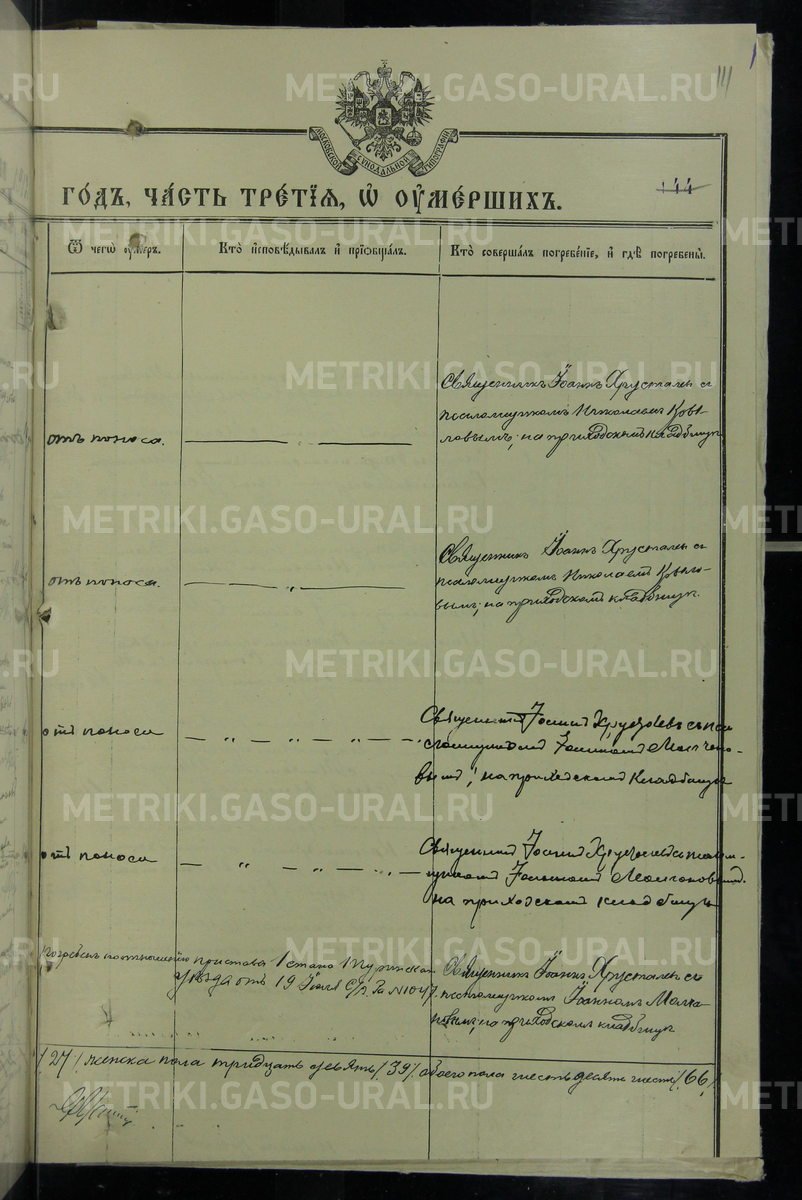 METRIKI.GASO-URAL.RU
111
МОСКОВСКОЙ СѴНОДАЛЬНОЙ ТИПОГРАФІИ
144
ГО́ДЪ, ЧА́СТЬ ТРЕ́ТІѦ, Ѡ҆ ОУ҆МЕ́РШИХЪ.
Ѿ чегѡ̀ оу҆́меръ.
Кто̀ и҆сповѣ́дывалъ и҆ прїѡбща́лъ.
Кто̀ соверша́лъ погребе́нїе, и҆ гдѣ̀ погребены̀.
отъ поноса.
Священникъ Іоаннъ Хрусталевъ съ
псаломщикомъ Николаемъ Ковы-
ловымъ; на приходскомъ кладбищѣ
отъ поноса.
Священникъ Іоаннъ Хрусталевъ съ
псаломщикомъ Николаемъ Ковыло-
вымъ; на приходскомъ кладбищѣ.
отъ поноса
Священникъ Іоаннъ съ пса
ломщикомъ Іоанномъ
вымъ; на приходскомъ кладбищѣ
отъ поноса
Священникъ Іоаннъ съ псалом-
щикомъ Іоанномъ
на приходскомъ кладбищѣ
Погребенъ по отношенію пристава 1 стана
уѣзда отъ 19 Іюля с/г. за №1047.
Священникъ Іоаннъ Хрусталевъ съ
псаломщикомъ Іоанномъ
на приходскомъ кладбищѣ
/27/ женска пола тридцать девять /39/ обоего пола шестьдесятъ шесть /66/